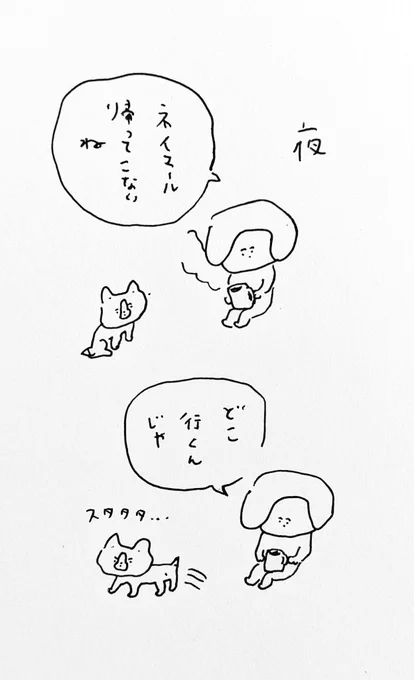 夜
ネイマール
帰ってこない
ね
どこ
行くん
じゃ
スタタタ...